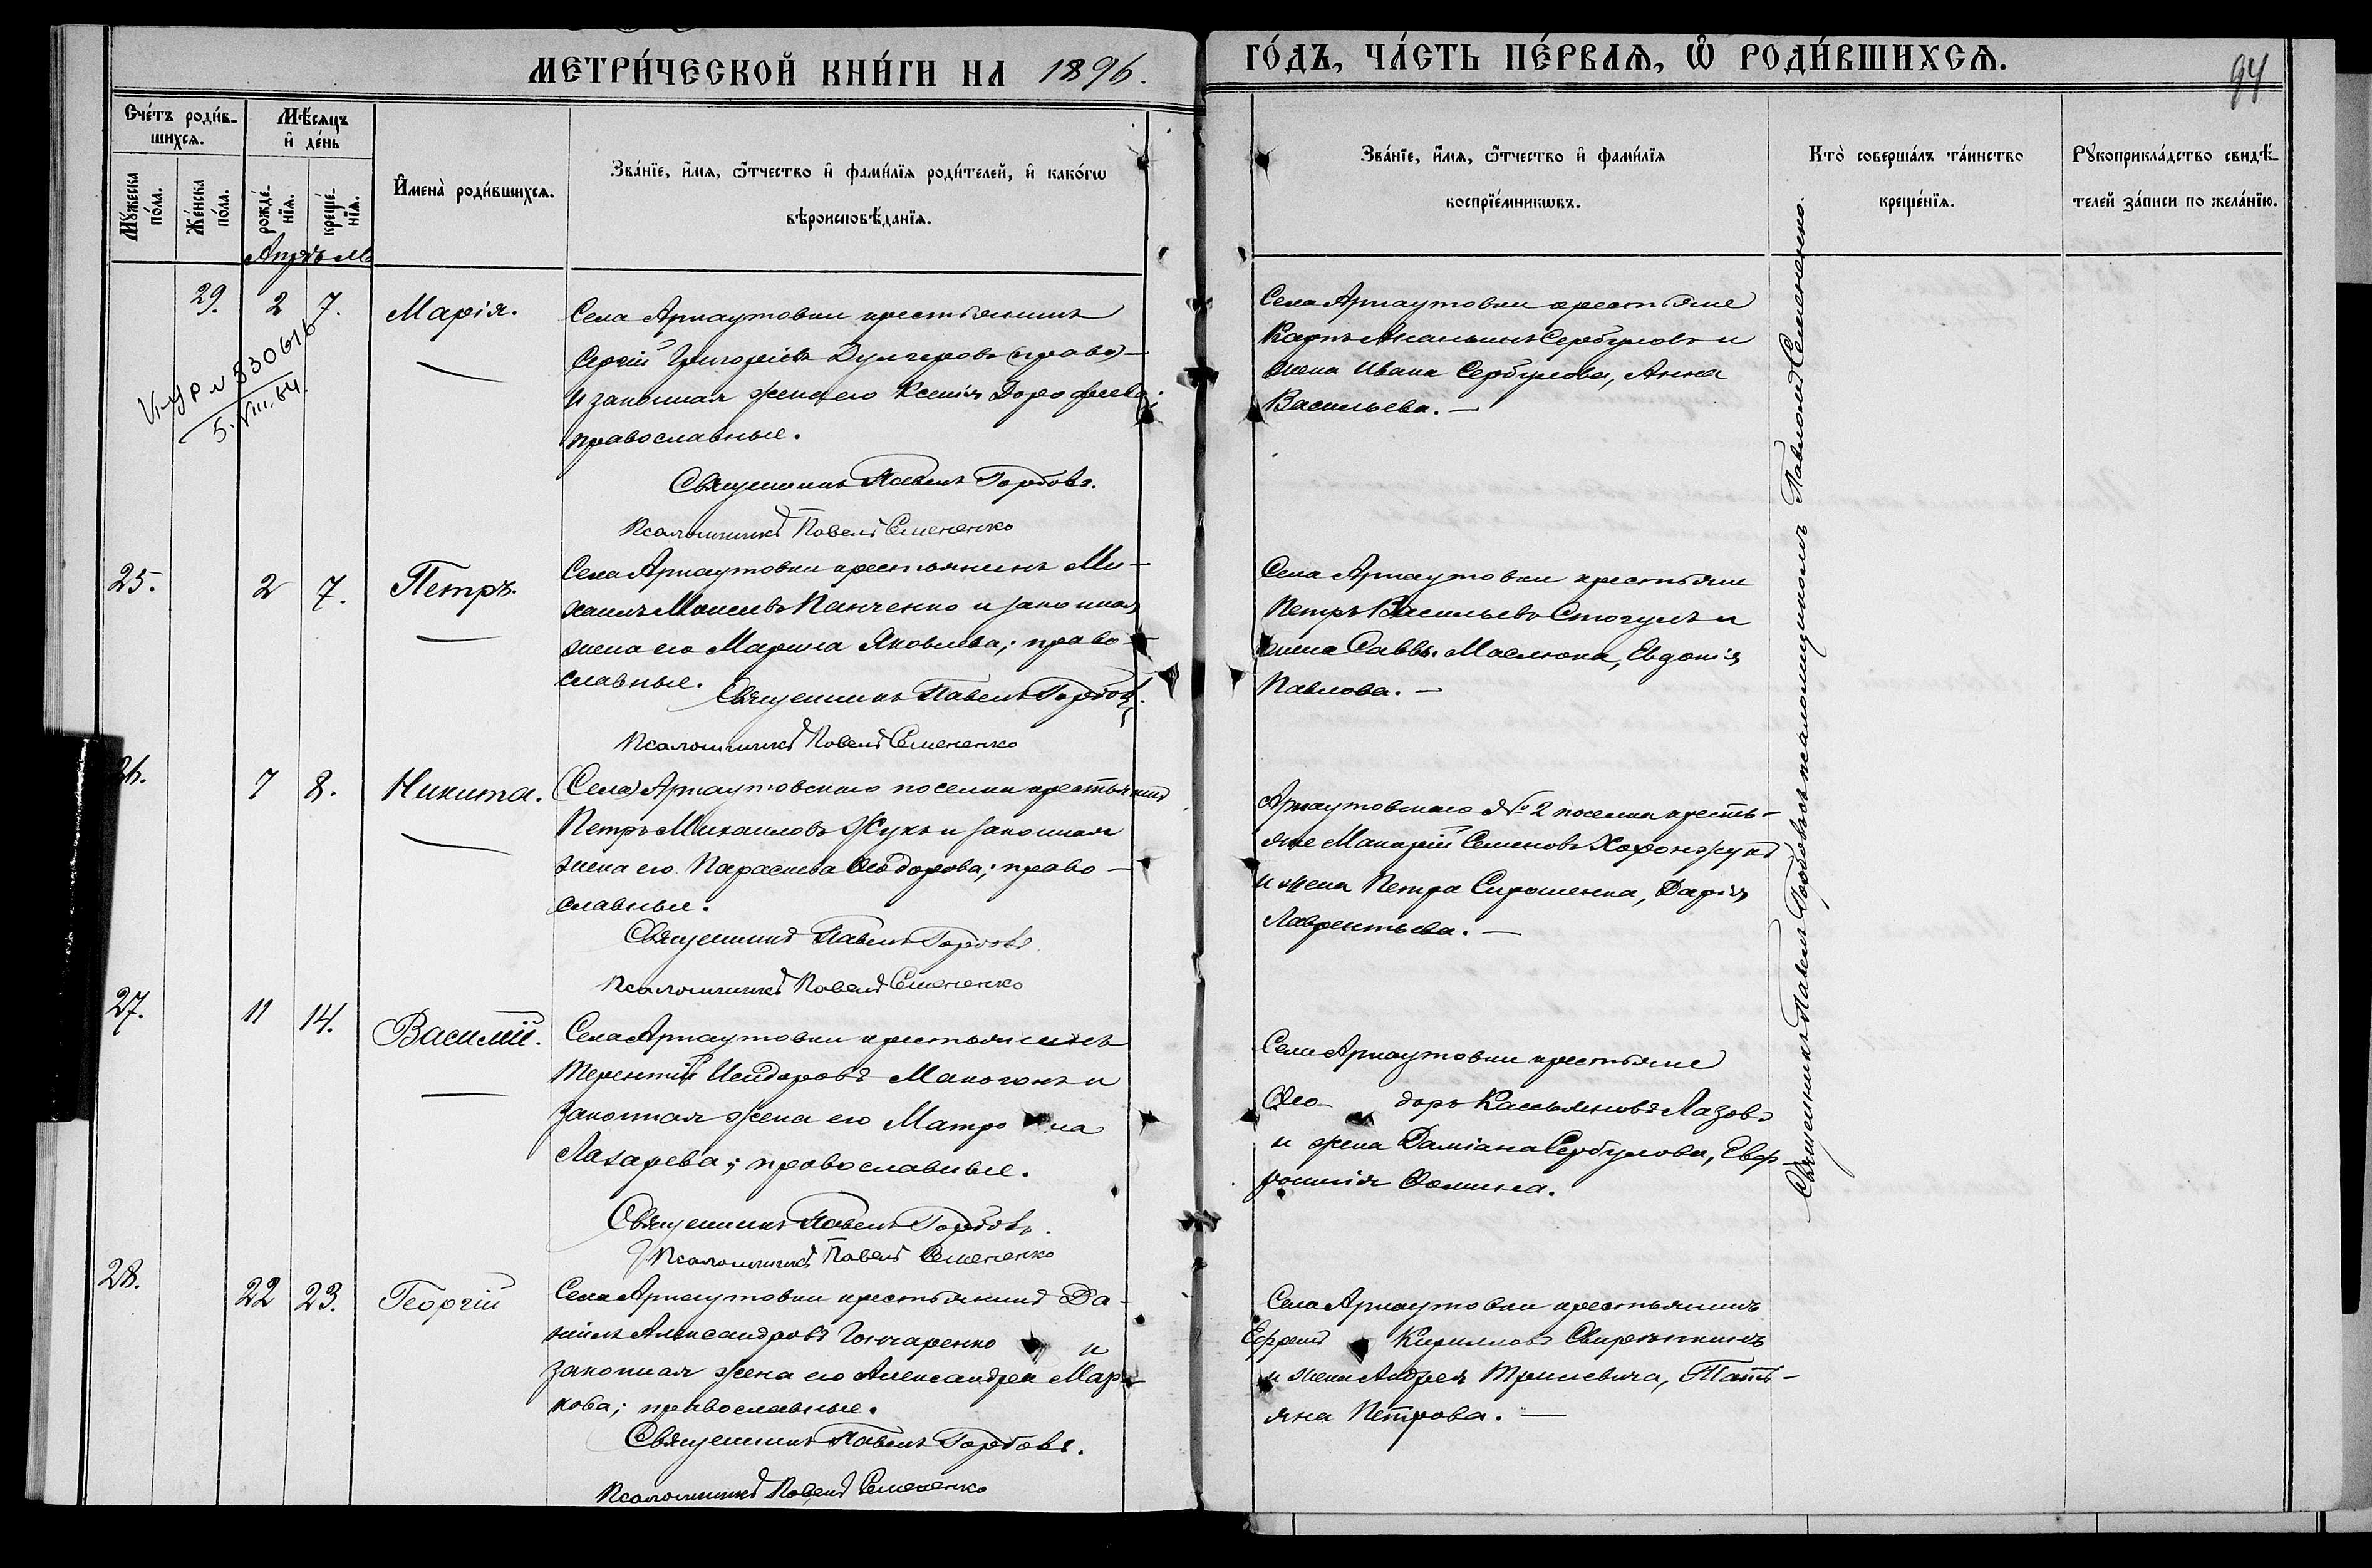 МЕТРИ́ЧЕСКОЙ КНИ́ГИ НА 1896.
ГО́ДЪ, ЧА́СТЬ ПЕ́РВАѦ, Ѽ РОДИ́ВШИХСѦ.
94
Сче́тъ роди́в-
шихсѧ.
Мѣ́сѧцъ
и҆ де́нь
Мꙋ́жеска
по́ла.
Же́нска
по́ла.
рожде́-
нїѧ.
креще́-
нїѧ.
И҆мена̀ роди́вшихсѧ.
Зва́нїе, и҆́мѧ, ѻ҆́тчество и҆ фамѝлїѧ роди́телей, и҆ како́гѡ
вѣроисповѣ́данїѧ.
Зва́нїе, и҆́мѧ, ѻ҆́тчество и҆ фами́лїѧ
воспрїе́мникѡвъ.
Кто̀ соверша́лъ та́инство
креще́нїѧ.
Рꙋкоприкла́дство свидѣ́-
телей за́писи по жела́нїю.
Апрѣль
29. 2 7. Марія.
Села Арнаутовки крестьянинъ
Сергій Григоріевъ Дулгеровъ (правъ)
и законная жена его Ксенія Дорофеева;
православные.
Священникъ Павелъ Горбовъ.
Псаломщикъ Павелъ Семененко
Села Арнаутовки крестьяне
Карпъ Ананьинъ Сербуловъ и
жена Ивана Сербулова, Анна
Васильева. —
№ 330616
5.VIII.64.
25. 2 7. Петръ.
Села Арнаутовки крестьянинъ Ми-
хаилъ Моисеевъ Панченко и законная
жена его Марина Яковлева; право-
славные.
Священникъ Павелъ Горбовъ.
Псаломщикъ Павелъ Семененко
Села Арнаутовки крестьяне
Петръ Васильевъ Стогулъ и
жена Саввы Маслюка, Евдокія
Павлова. —
26. 7 8. Никита.
(Села) Арнаутовскаго поселка крестьянинъ
Петръ Михаиловъ Жукъ и законная
жена его Параскева Ѳеодорова; право-
славные.
Священникъ Павелъ Горбовъ.
Псаломщикъ Павелъ Семененко
Арнаутовскаго № 2 поселка кресть-
яне Макарій Семеновъ Хоронжукъ
и жена Петра Сирошенка, Дарія
Лаврентьева. —
27. 11 14. Василій.
Села Арнаутовки крестьянинъ
Терентій Исидоровъ Макогонъ и
законная жена его Матрона
Лазарева; православные.
Священникъ Павелъ Горбовъ.
Псаломщикъ Павелъ Семененко
Села Арнаутовки крестьяне
Ѳео- доръ Кассьяновъ Лазовъ
и жена Даміана Сербулова, Евф-
росинія Ѳомина.
28. 22 23. Георгій
Села Арнаутовки крестьянинъ Да-
ніилъ Александровъ Гончаренко и
законная жена его Александра Мар-
кова; православные.
Священникъ Павелъ Горбовъ.
Псаломщикъ Павелъ Семененко
Села Арнаутовки крестьянинъ
Ефремъ Кирилловъ
и жена Андрея Трилевича, Тать-
яна Петрова. —
Священникъ Павелъ Горбовъ съ псаломщикомъ Павломъ Семененко.